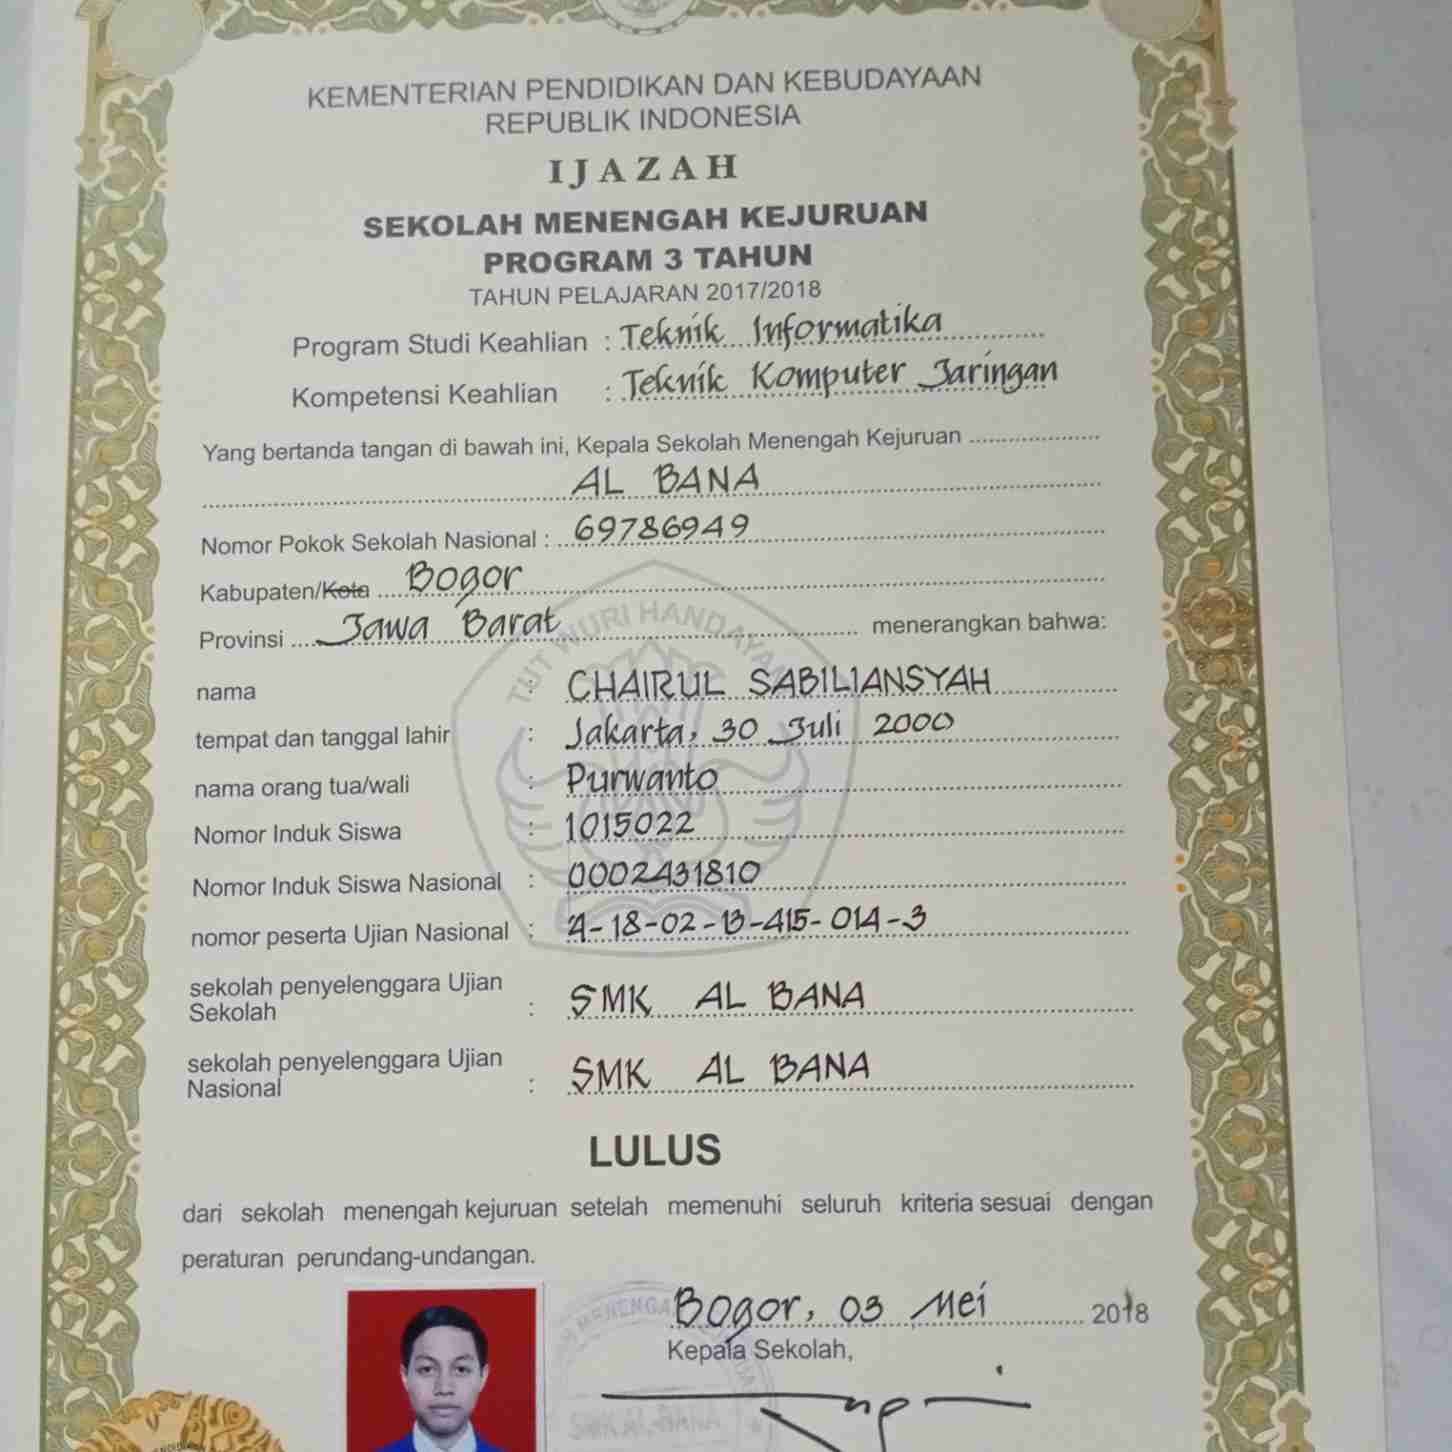 KEMENTERIAN PENDIDIKAN DAN KEBUDAYAAN
REPUBLIK INDONESIA
IJAZAH
SEKOLAH MENENGAH KEJURUAN
PROGRAM 3 TAHUN
TAHUN PELAJARAN 2017/2018
Program Studi Keahlian : Teknik Informatika
Kompetensi Keahlian : Teknik Komputer Jaringan
Yang bertanda tangan di bawah ini, Kepala Sekolah Menengah Kejuruan
AL BANA
Nomor Pokok Sekolah Nasional : 69786949
Kabupaten/Kota Bogor
Provinsi Jawa Barat menerangkan bahwa:
TUT WURI HANDAYANI
nama : CHAIRUL SABILIANSYAH
tempat dan tanggal lahir : Jakarta, 30 Juli 2000
nama orang tua/wali : Purwanto
Nomor Induk Siswa : 1015022
Nomor Induk Siswa Nasional : 0002431810
nomor peserta Ujian Nasional : 4-18-02-13-415-014-3
sekolah penyelenggara Ujian
Sekolah : SMK AL BANA
sekolah penyelenggara Ujian
Nasional : SMK AL BANA
LULUS
dari sekolah menengah kejuruan setelah memenuhi seluruh kriteria sesuai dengan
peraturan perundang-undangan.
Bogor, 03 Mei 2018
Kepala Sekolah,